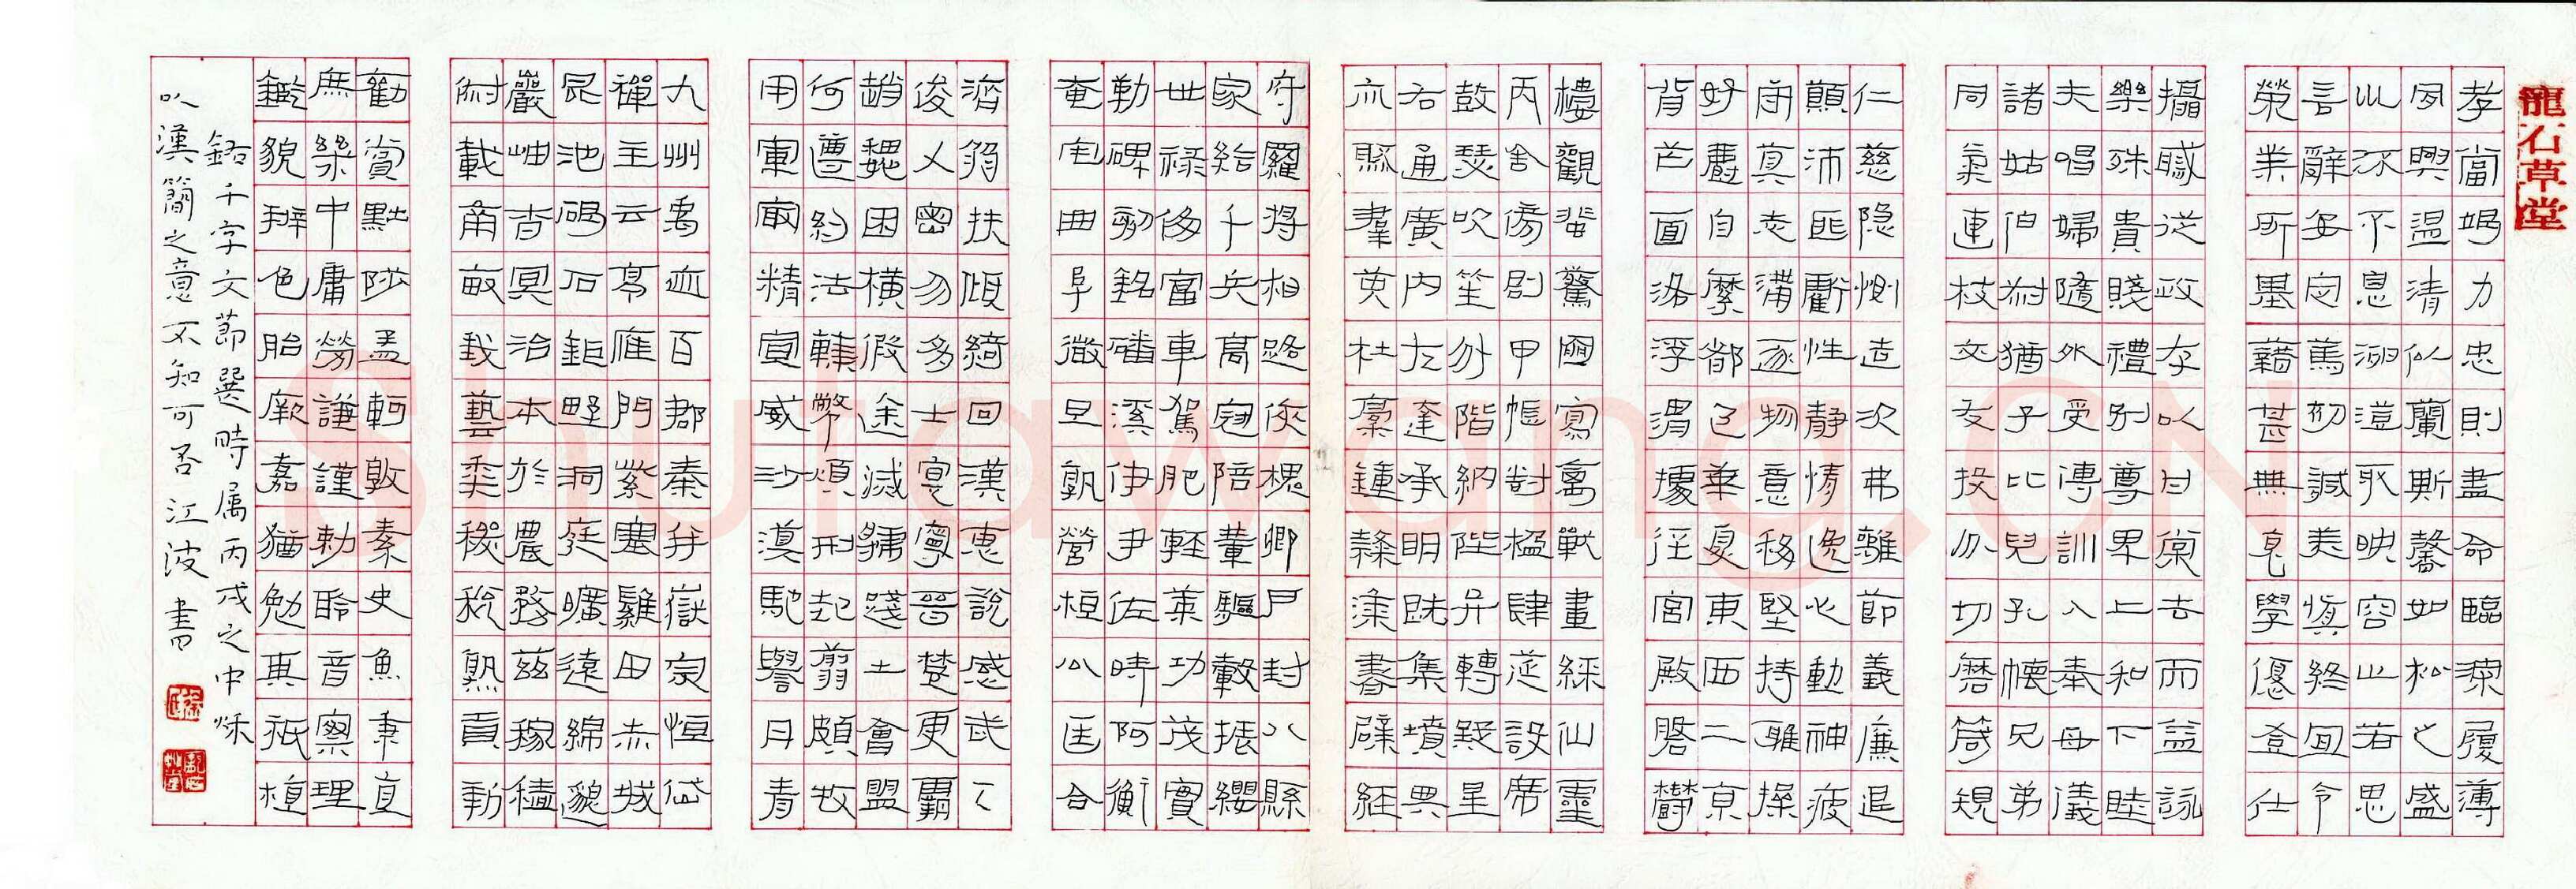 龍石草堂
孝當竭力忠則盡命臨深履薄
夙興温清似蘭斯馨如松之盛
川流不息淵澄取映容止若思
言辭安定篤初誠美慎終宜令
榮業所基藉甚無竟學優登仕
攝職從政存以甘棠去而益詠
樂殊貴賤禮別尊卑上和下睦
夫唱婦隨外受傅訓入奉母儀
諸姑伯叔猶子比兒孔懷兄弟
同氣連枝交友投分切磨箴規
仁慈隐惻造次弗離節義廉退
顛沛匪虧性靜情逸心動神疲
守真志滿逐物意移堅持雅操
好爵自縻都邑華夏東西二京
背芒面洛浮渭據涇宮殿盤鬱
樓觀蜚驚圖寫禽獸畫綵仙靈
丙舍傍啟甲帳對楹肆筵設席
鼓瑟吹笙升階納陛弁轉疑星
右通廣內左達承明既集墳典
亦聚羣英杜稾鍾隸漆書壁經
府羅將相路俠槐卿戶封八縣
家給千兵高冠陪輦驅轂振纓
世祿侈富車駕肥輕策功茂實
勒碑刻銘磻溪伊尹佐時阿衡
奄宅曲阜微旦孰營桓公匡合
濟弱扶傾綺回漢惠說感武丁
俊乂密勿多士寔寧晉楚更霸
趙魏困橫假途滅虢踐土會盟
何遵約法韓弊煩刑起翦頗牧
用軍最精宣威沙漠馳譽丹青
九州禹跡百郡秦并嶽宗恒岱
禪主云亭雁門紫塞雞田赤城
昆池碣石鉅野洞庭曠遠綿邈
巖岫杳冥治本於農務茲稼穡
俶載南畝我藝黍稷稅熟貢新
勸賞黜陟孟軻敦素史魚秉直
庶幾中庸勞謙謹勅聆音察理
鑑貌辨色貽厥嘉猷勉其祗植
錄千字文節選時属丙戌之中秋
以漢簡之意不知可否江波書
shufawang.CN